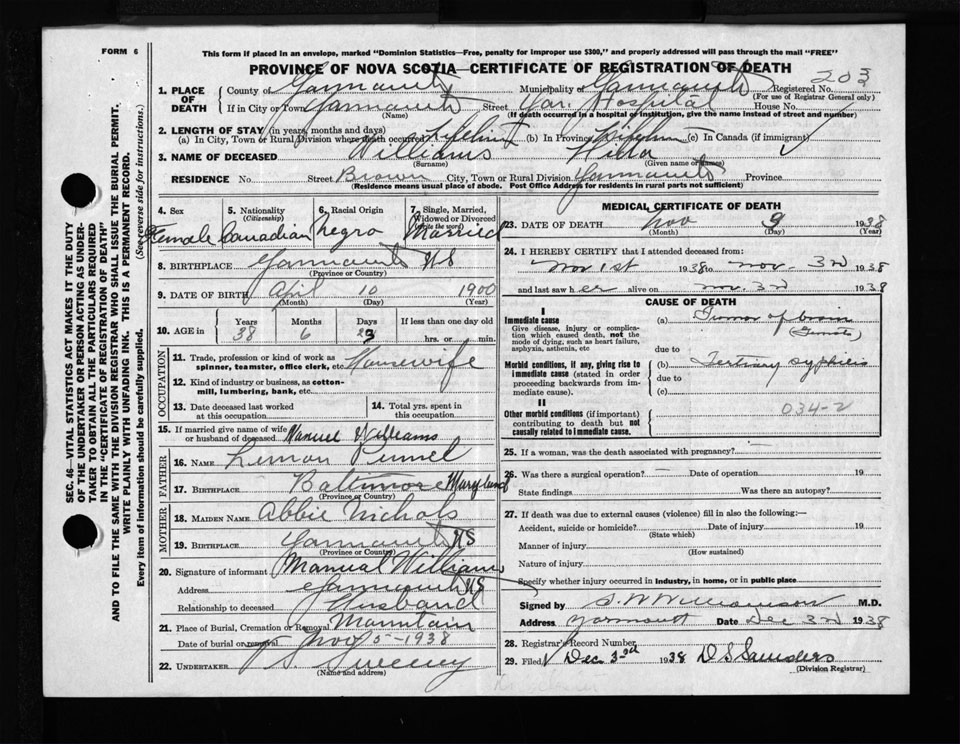 FORM 6
This form if placed in an envelope, marked "Dominion Statistics—Free, penalty for improper use $300," and properly addressed will pass through the mail "FREE"
PROVINCE OF NOVA SCOTIA—CERTIFICATE OF REGISTRATION OF DEATH
203
1. PLACE OF DEATH County of Yarmouth Municipality of Yarmouth Registered No.
(For use of Registrar General only)
If in City or Town Yarmouth Street Yar. Hospital House No.
(Name) (If death occurred in a hospital or institution, give the name instead of street and number)
2. LENGTH OF STAY (in years, months and days)
(a) In City, Town or Rural Division where death occurred Lifetime (b) In Province Lifetime (c) In Canada (if immigrant)
3. NAME OF DECEASED Williams
(Surname) (Given name or names)
RESIDENCE No. Street Brown City, Town or Rural Division Yarmouth Province
(Residence means usual place of abode. Post Office Address for residents in rural parts not sufficient)
4. Sex Female
5. Nationality (Citizenship) Canadian
6. Racial Origin Negro
7. Single, Married, Widowed or Divorced (Write the word) Married
8. BIRTHPLACE Yarmouth NS
(Province or Country)
9. DATE OF BIRTH April 10 1900
(Month) (Day) (Year)
10. AGE in Years 38 Months 6 Days 23 If less than one day old hrs. or min.
OCCUPATION
11. Trade, profession or kind of work as spinner, teamster, office clerk, etc. Housewife
12. Kind of industry or business, as cotton-mill, lumbering, bank, etc.
13. Date deceased last worked at this occupation
14. Total yrs. spent in this occupation
15. If married give name of wife or husband of deceased Manuel Williams
FATHER
16. NAME
17. BIRTHPLACE Baltimore Maryland
(Province or Country)
MOTHER
18. MAIDEN NAME Abbie Nichols
19. BIRTHPLACE Yarmouth NS
(Province or Country)
20. Signature of informant Manual Williams
Address Yarmouth NS
Relationship to deceased Husband
21. Place of Burial, Cremation or Removal Mountain
Date of burial or removal Nov 5-1938
22. UNDERTAKER Sweeny
(Name and address)
MEDICAL CERTIFICATE OF DEATH
23. DATE OF DEATH Nov 1938
(Month) (Day) (Year)
24. I HEREBY CERTIFY that I attended deceased from:
Nov 1st 1938 to Nov. 3rd 1938
and last saw her alive on Nov. 3rd 1938
CAUSE OF DEATH
I
Immediate cause
Give disease, injury or complication which caused death, not the mode of dying, such as heart failure, asphyxia, asthenia, etc
(a) Tumor of brain
due to
Morbid conditions, if any, giving rise to immediate cause (stated in order proceeding backwards from immediate cause).
(b) Tertiary syphilis
due to
(c)
II
Other morbid conditions (if important) contributing to death but not causally related to immediate cause.
034-2
25. If a woman, was the death associated with pregnancy?
26. Was there a surgical operation? — Date of operation 19
State findings Was there an autopsy?
27. If death was due to external causes (violence) fill in also the following:—
Accident, suicide or homicide? Date of injury 19
(State which)
Manner of injury
(How sustained)
Nature of injury
Specify whether injury occurred in industry, in home, or in public place
Signed by S.W. Williamson M.D.
Address Yarmouth Date Dec 3rd 1938
28. Registrar's Record Number
29. Filed Dec 3rd 1938 D S Saunders
(Division Registrar)
SEC. 46—VITAL STATISTICS ACT MAKES IT THE DUTY
OF THE UNDERTAKER OR PERSON ACTING AS UNDER-
TAKER TO OBTAIN ALL THE PARTICULARS REQUIRED
IN THE "CERTIFICATE OF REGISTRATION OF DEATH"
AND TO FILE THE SAME WITH THE DIVISION REGISTRAR WHO SHALL ISSUE THE BURIAL PERMIT.
WRITE PLAINLY WITH UNFADING INK. THIS IS A PERMANENT RECORD.
Every item of information should be carefully supplied. (See reverse side for instructions.)